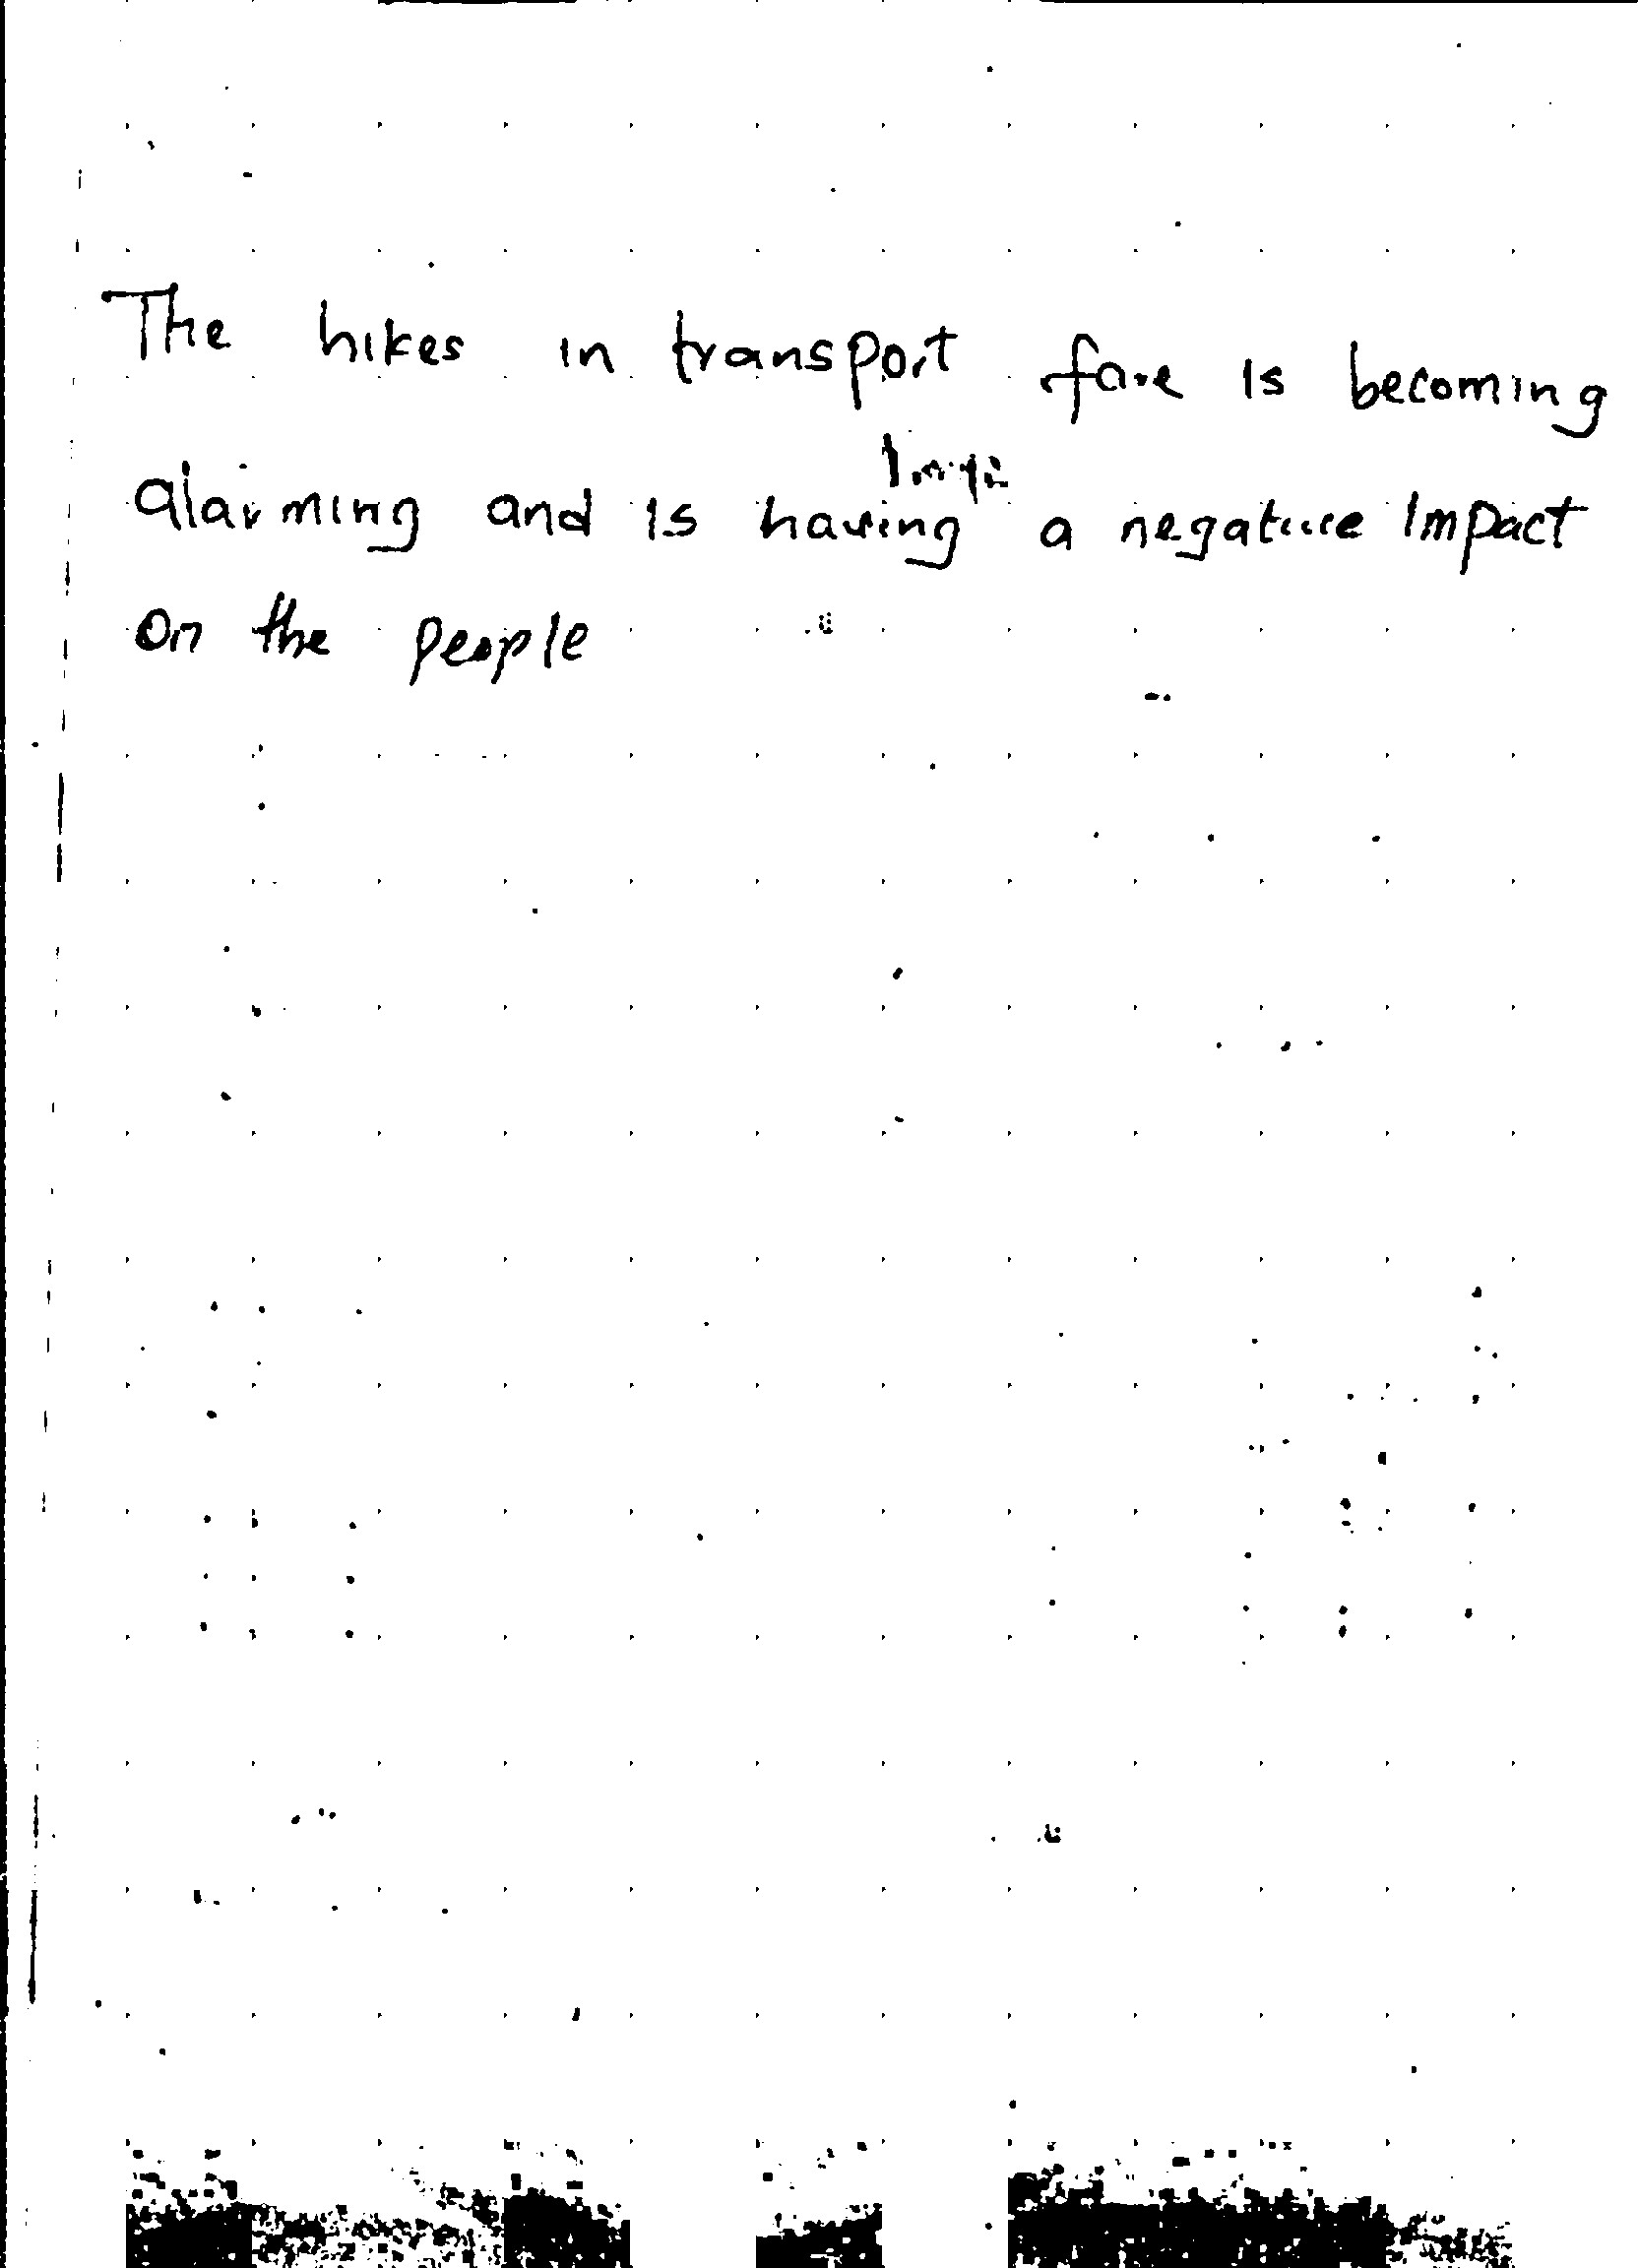 The hikes in transport fare is becoming
alarming and is having a negative Impact
on the people